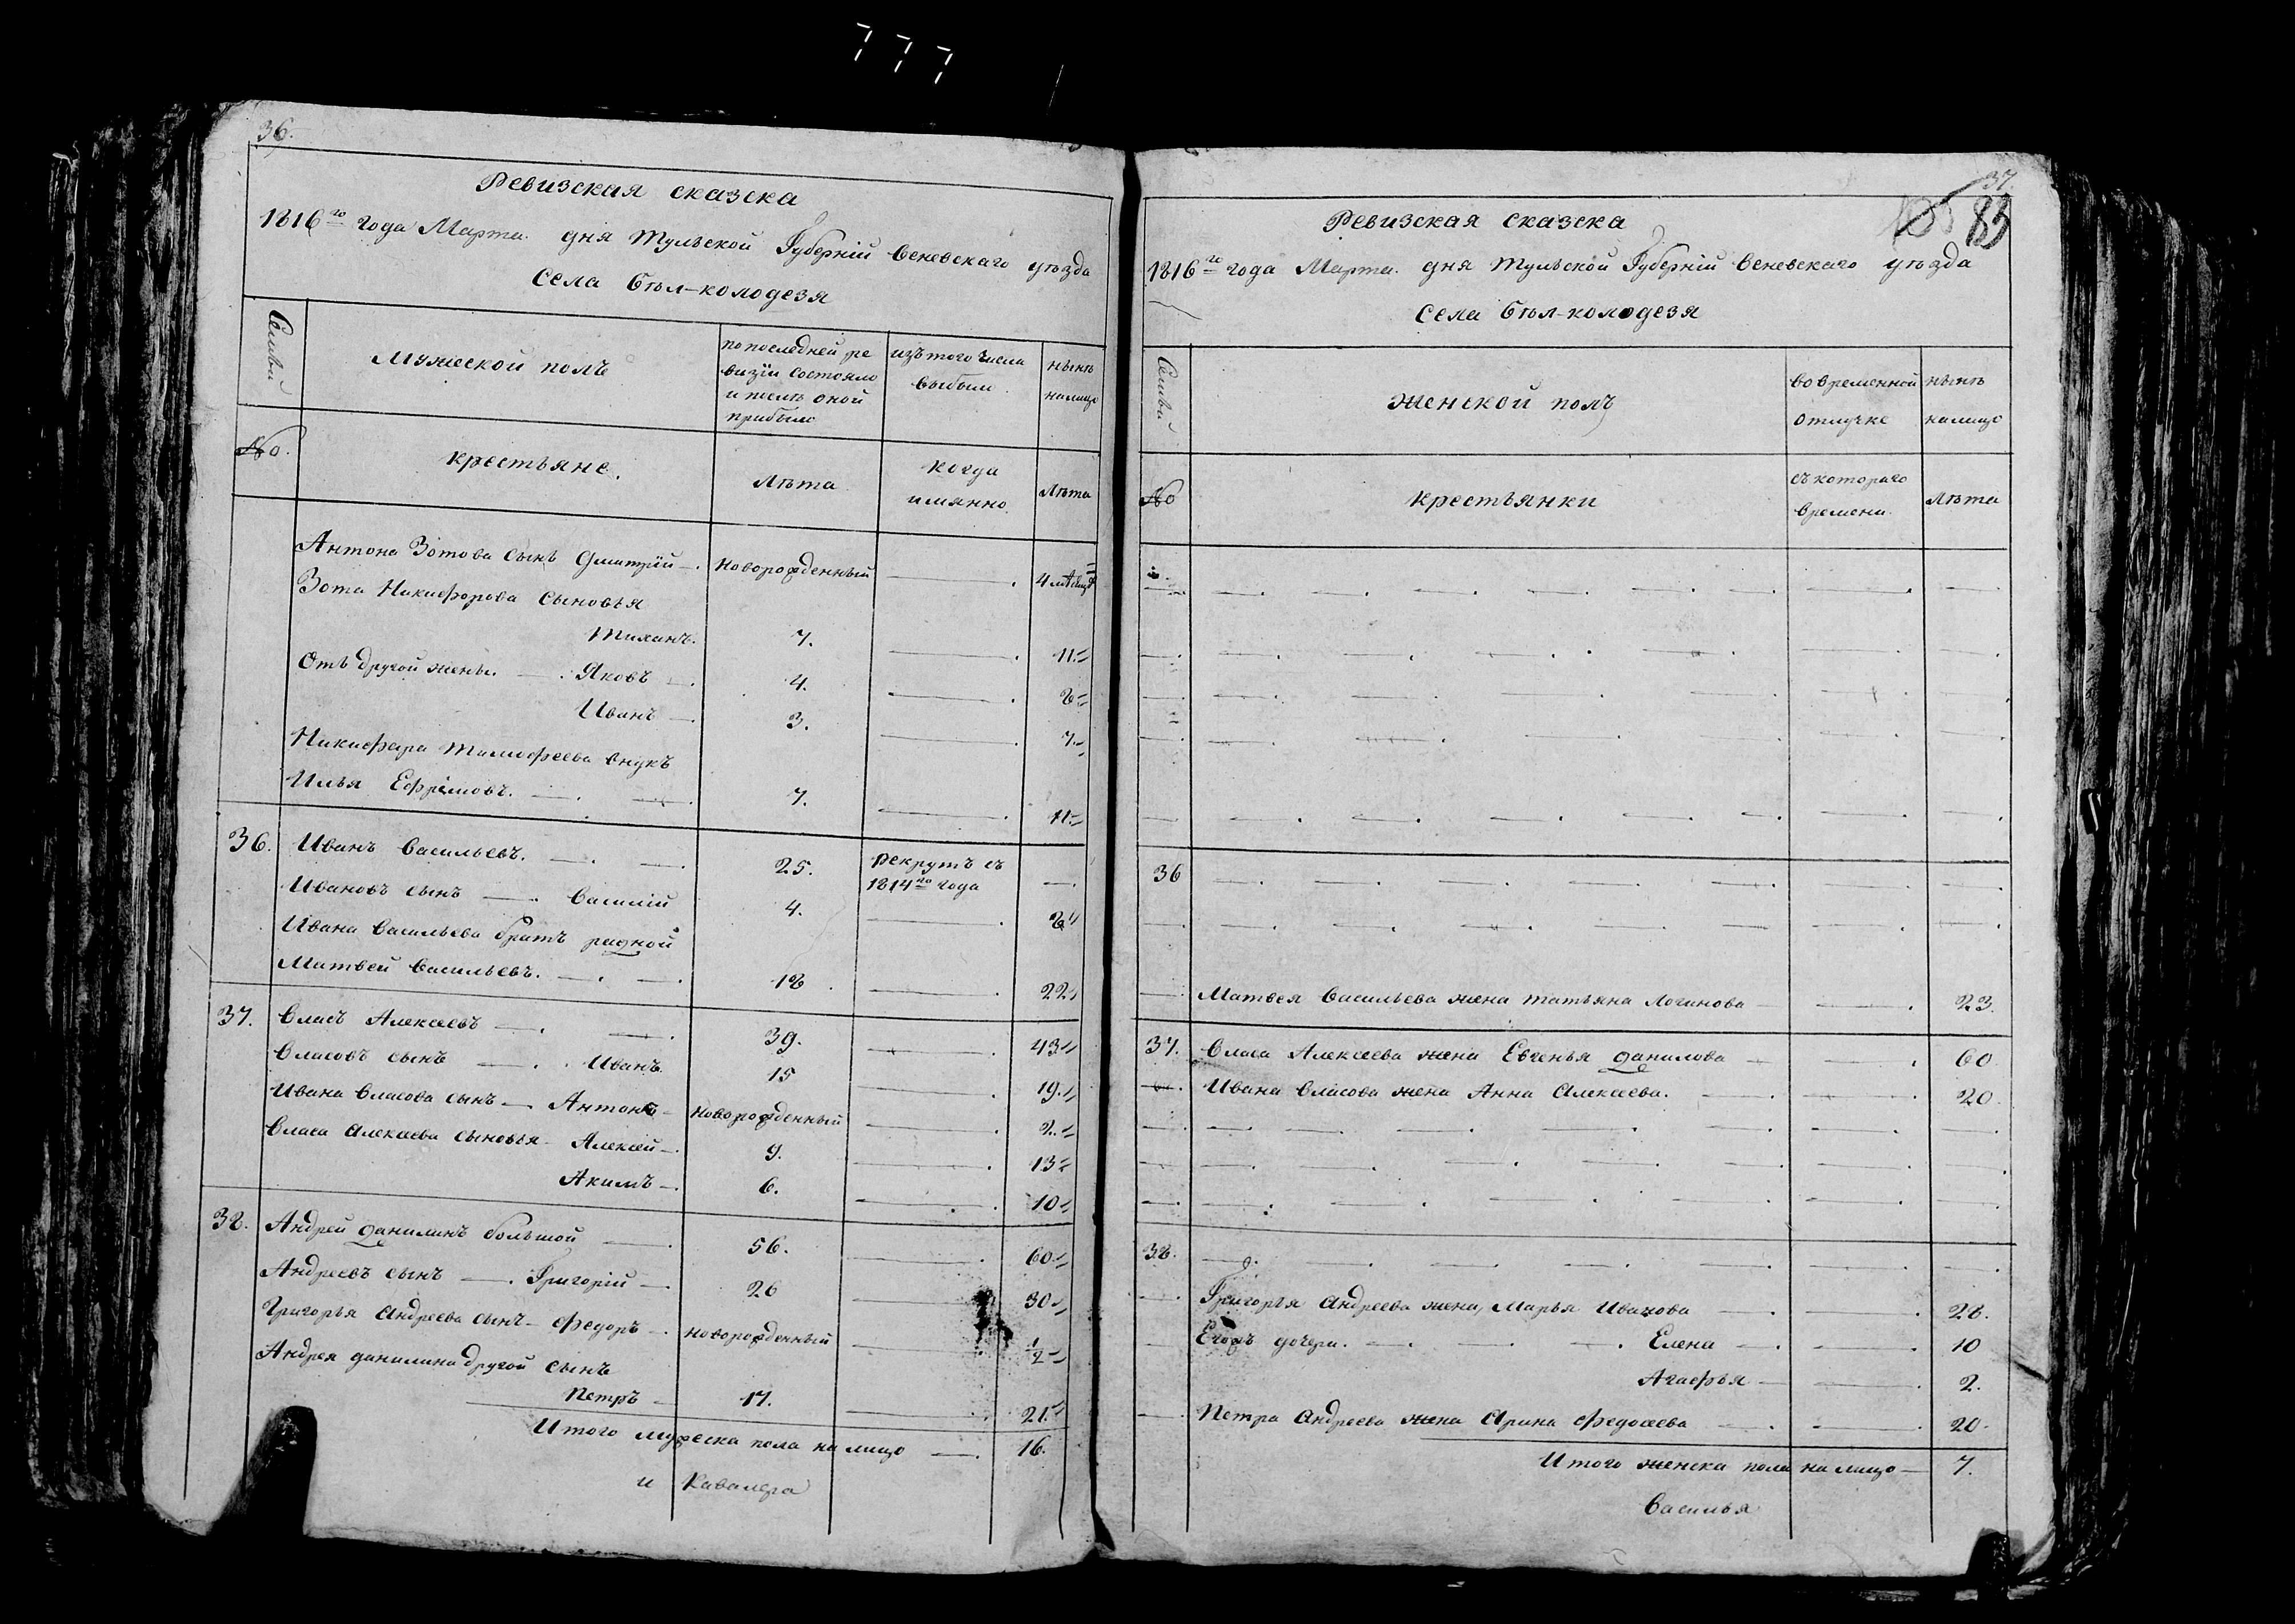 36.
Ревизская сказка
1816го года Марта. дня Тульской Губернiй Веневскаго уѣзда
Села Бѣл-колодезя
Семьи
Мужеской полъ
по последней ре
визiи состояло
и послѣ оной
прибыло
изъ того числа
выбыли
нынѣ
налицо
№.
крестьяне.
Лѣта
когда
имянно.
Лѣта
Антона Зотова сынъ Дмитрiй — новорожденный — 4 мѣсяца
Зота Никифорова сыновья
Тиханъ. 7. — 11.
Отъ другой жены. — Яковъ — 4. — 8
Иванъ — 3. — 7.
Никифора Тимофеева внукъ
Илья Ефремовъ. — 7. — 11.
36. Иванъ Васильевъ. — 25. рекрутъ съ
1814го года —
Ивановъ сынъ — Василiй 4. — 8
Ивана Васильева братъ родной
Матвей Васильевъ. — 18 — 22
37. Власъ Алексеевъ — 39. — 43
Власовъ сынъ — Иванъ 15 — 19.
Ивана Власова сынъ — Антонъ — новорожденный — 2.
Власа Алексеева сыновья — Алексей — 9. — 13
Акимъ — 6. — 10
38. Андрей Данилинъ большой — 56. — 60.
Андреевъ сынъ — Григорiй — 26 — 30
Григорья Андреева сынъ — Федоръ — новорожденный — 1/2
Андрея Данилина другой сынъ
Петръ — 17. — 21.
Итого мужеска пола на лицо — 16.
и Кавалера
37.
83
Ревизская сказка
1816го года Марта. дня Тульской Губернiй Веневскаго уѣзда
Села Бѣл-колодезя
Семьи
Женской полъ
во временной
отлучке
нынѣ
налицо
№
крестьянки
съ котораго
времени
Лѣта
36
Матвея Васильева жена Татьяна Логинова — 23.
37. Власа Алексеева жена Евгенья Данилова — 60
Ивана Власова жена Анна Алексеева. — 20
38.
Григорья Андреева жена, Марья Иванова — 28.
Егоръ дочери. — Елена — 10
Агафья — 2.
Петра Андреева жена Арина Федосеева — 20.
Итого женска пола на лицо — 7.
Василья